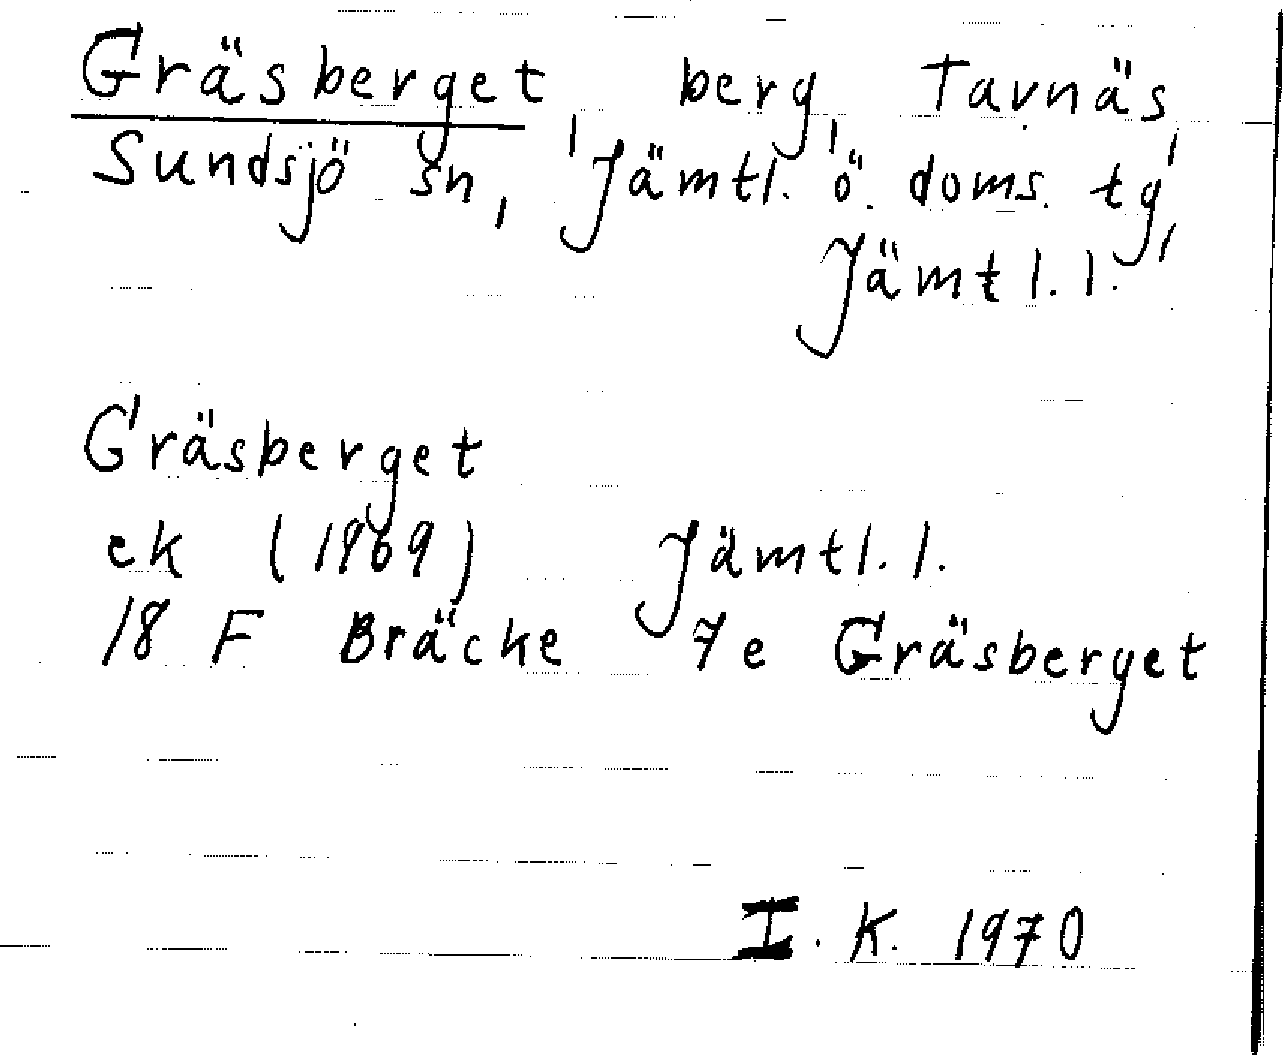 Gräsberget, berg, Tavnäs,
Sundsjö sn, Jämtl. ö. doms. tg,
Jämtl. l.
Gräsberget
ek (1969) Jämtl. l.
18 F Bräcke 7e Gräsberget
I. K. 1970